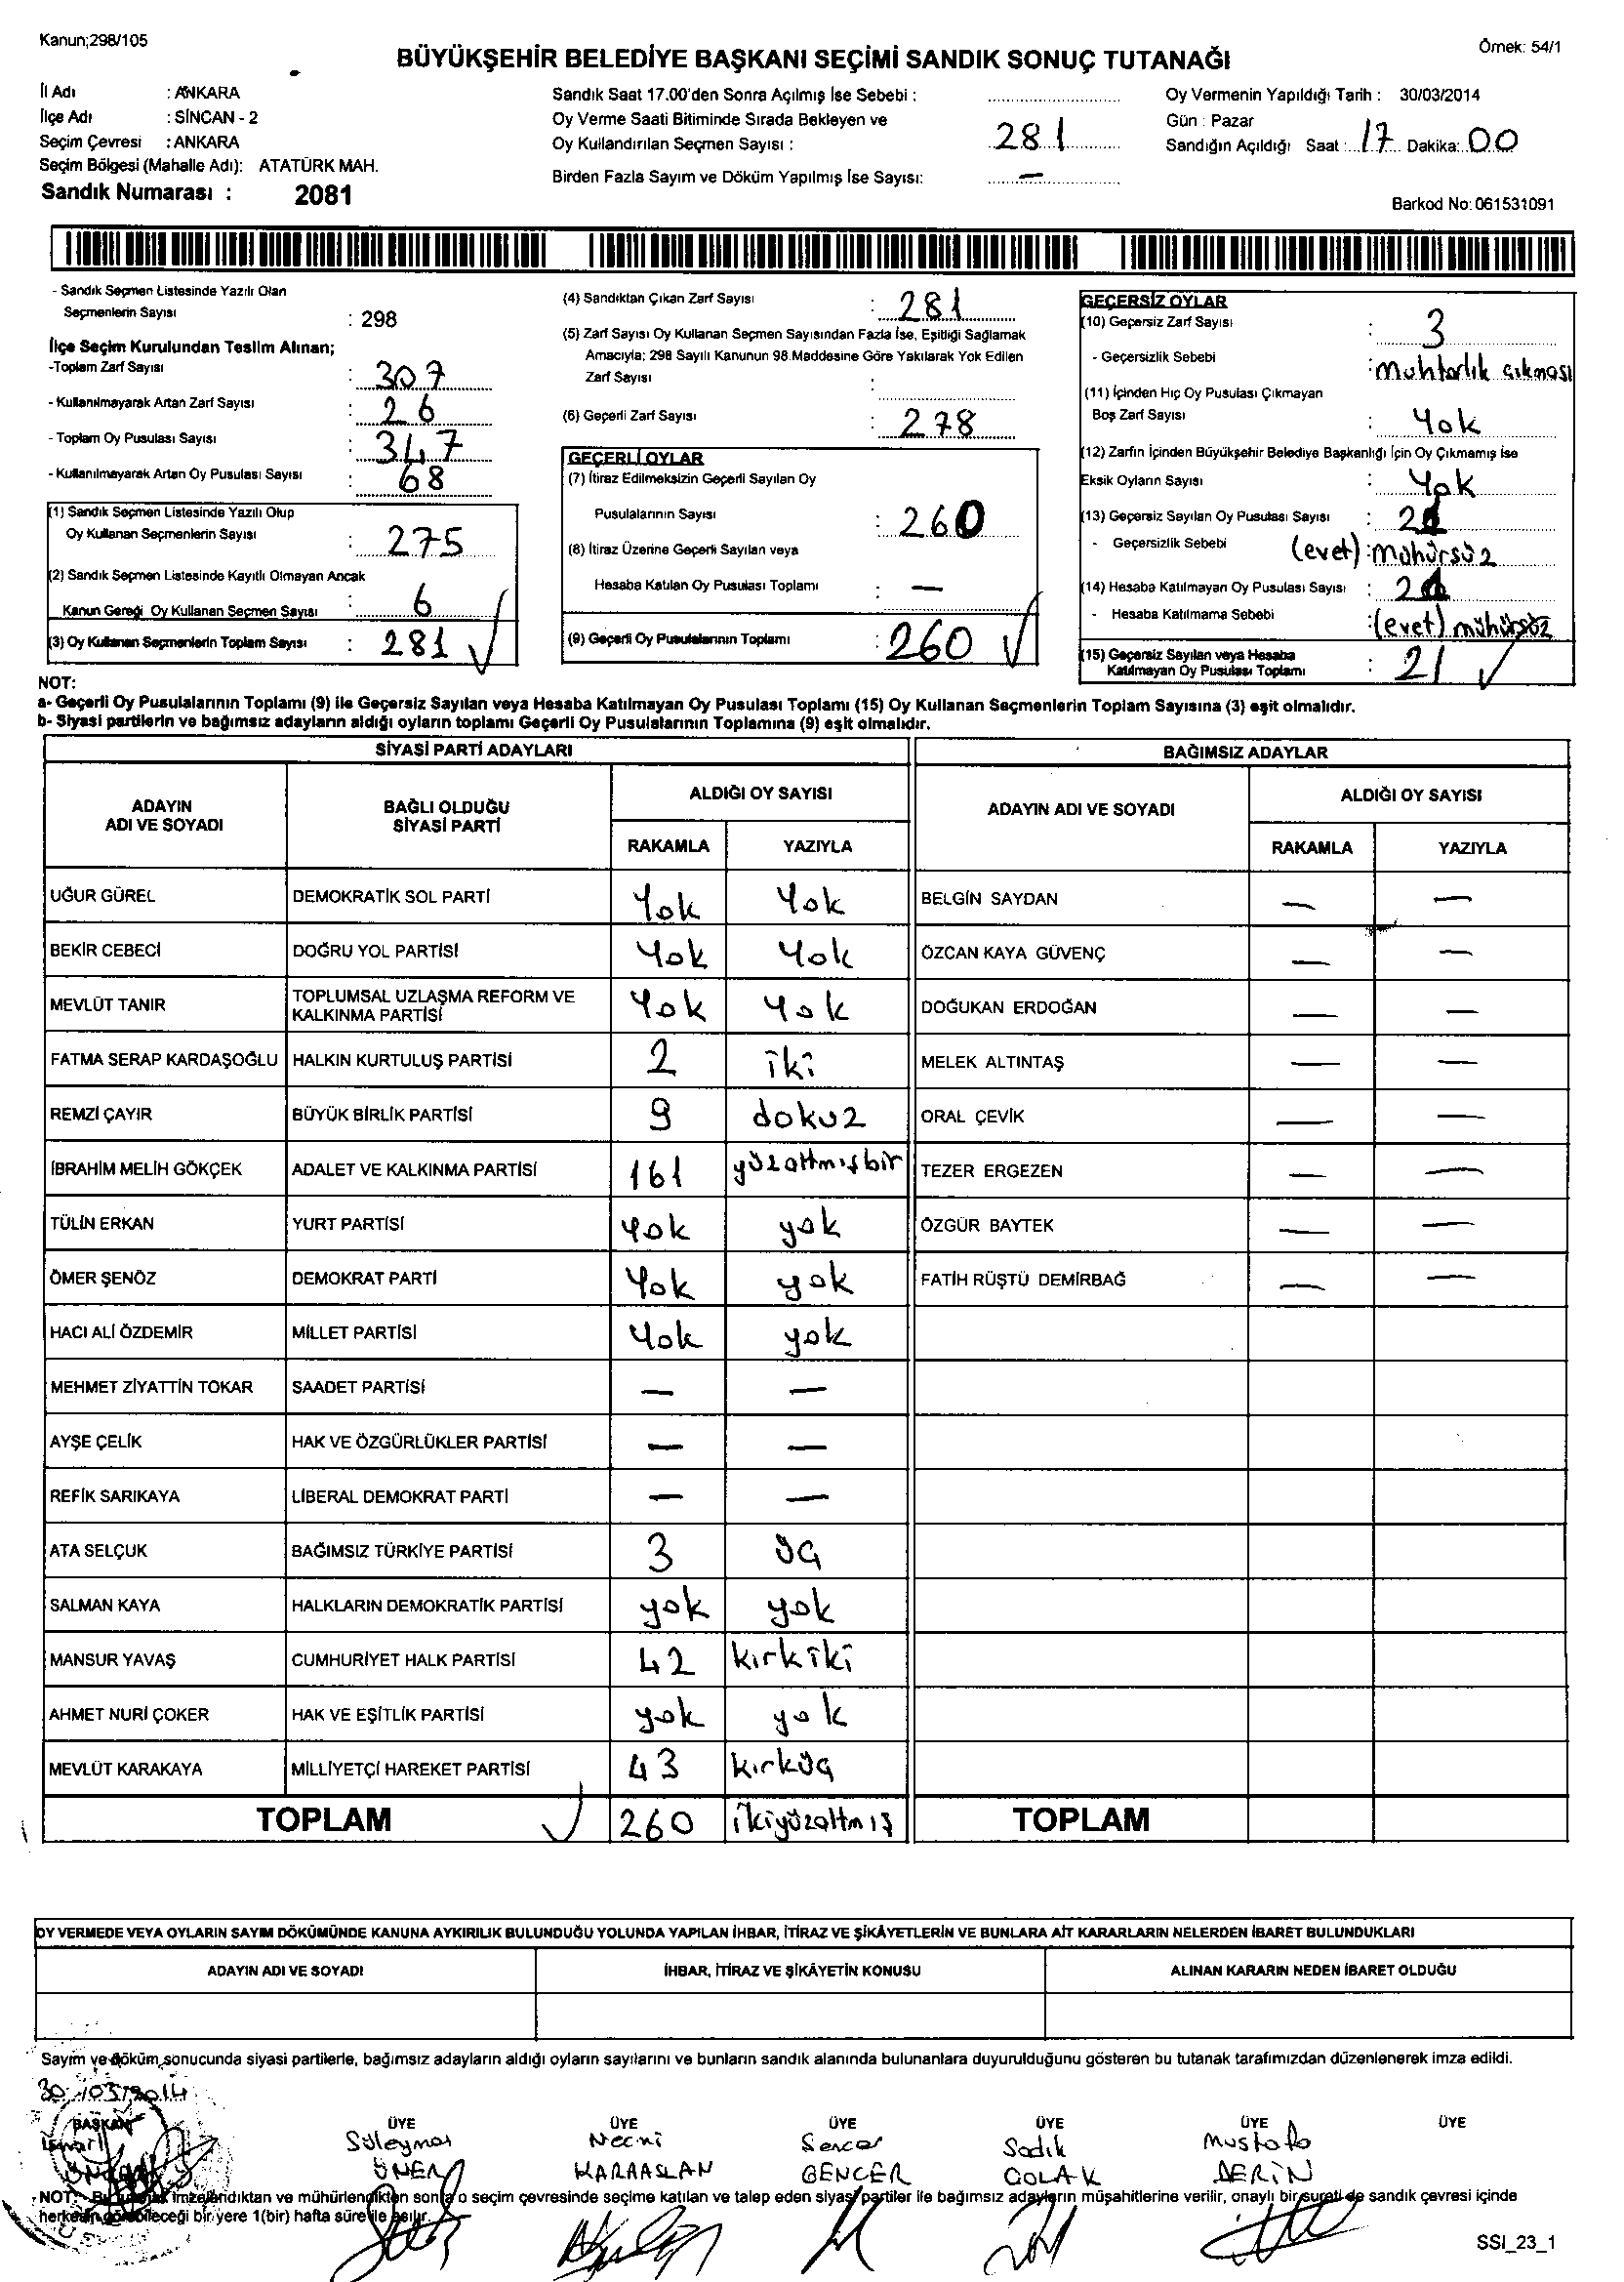 Kanun;298/105
Örnek: 54/1
BÜYÜKŞEHİR BELEDİYE BAŞKANI SEÇİMİ SANDIK SONUÇ TUTANAĞI
İl Adı : ANKARA
İlçe Adı : SİNCAN - 2
Seçim Çevresi : ANKARA
Seçim Bölgesi (Mahalle Adı): ATATÜRK MAH.
Sandık Numarası : 2081
Sandık Saat 17.00'den Sonra Açılmış İse Sebebi :
Oy Verme Saati Bitiminde Sırada Bekleyen ve
Oy Kullandırılan Seçmen Sayısı : 281
Birden Fazla Sayım ve Döküm Yapılmış İse Sayısı: —
Oy Vermenin Yapıldığı Tarih : 30/03/2014
Gün : Pazar
Sandığın Açıldığı Saat : 17 Dakika: 00
Barkod No: 061531091
- Sandık Seçmen Listesinde Yazılı Olan
Seçmenlerin Sayısı : 298
İlçe Seçim Kurulundan Teslim Alınan;
-Toplam Zarf Sayısı : 307
- Kullanılmayarak Artan Zarf Sayısı : 26
- Toplam Oy Pusulası Sayısı : 347
- Kullanılmayarak Artan Oy Pusulası Sayısı : 68
(1) Sandık Seçmen Listesinde Yazılı Olup
Oy Kullanan Seçmenlerin Sayısı : 275
(2) Sandık Seçmen Listesinde Kayıtlı Olmayan Ancak
Kanun Gereği Oy Kullanan Seçmen Sayısı : 6
(3) Oy Kullanan Seçmenlerin Toplam Sayısı : 281
(4) Sandıktan Çıkan Zarf Sayısı : 281
(5) Zarf Sayısı Oy Kullanan Seçmen Sayısından Fazla İse, Eşitliği Sağlamak
Amacıyla; 298 Sayılı Kanunun 98.Maddesine Göre Yakılarak Yok Edilen
Zarf Sayısı :
(6) Geçerli Zarf Sayısı : 278
GEÇERLİ OYLAR
(7) İtiraz Edilmeksizin Geçerli Sayılan Oy
Pusulalarının Sayısı : 260
(8) İtiraz Üzerine Geçerli Sayılan veya
Hesaba Katılan Oy Pusulası Toplamı : —
(9) Geçerli Oy Pusulalarının Toplamı : 260
GEÇERSİZ OYLAR
(10) Geçersiz Zarf Sayısı : 3
- Geçersizlik Sebebi : muhtarlık çıkması
(11) İçinden Hiç Oy Pusulası Çıkmayan
Boş Zarf Sayısı : Yok
(12) Zarfın İçinden Büyükşehir Belediye Başkanlığı İçin Oy Çıkmamış ise
Eksik Oyların Sayısı : Yok
(13) Geçersiz Sayılan Oy Pusulası Sayısı : 21
- Geçersizlik Sebebi (evet) : mühürsüz
(14) Hesaba Katılmayan Oy Pusulası Sayısı :
- Hesaba Katılmama Sebebi : (evet) mühürsüz
(15) Geçersiz Sayılan veya Hesaba
Katılmayan Oy Pusulası Toplamı : 21
NOT:
a- Geçerli Oy Pusulalarının Toplamı (9) ile Geçersiz Sayılan veya Hesaba Katılmayan Oy Pusulası Toplamı (15) Oy Kullanan Seçmenlerin Toplam Sayısına (3) eşit olmalıdır.
b- Siyasi partilerin ve bağımsız adayların aldığı oyların toplamı Geçerli Oy Pusulalarının Toplamına (9) eşit olmalıdır.
SİYASİ PARTİ ADAYLARI
BAĞIMSIZ ADAYLAR
ADAYIN ADI VE SOYADI
BAĞLI OLDUĞU SİYASİ PARTİ
ALDIĞI OY SAYISI
RAKAMLA YAZIYLA
ADAYIN ADI VE SOYADI
ALDIĞI OY SAYISI
RAKAMLA YAZIYLA
UĞUR GÜREL DEMOKRATİK SOL PARTİ Yok Yok BELGİN SAYDAN — —
BEKİR CEBECİ DOĞRU YOL PARTİSİ Yok Yok ÖZCAN KAYA GÜVENÇ — —
MEVLÜT TANIR TOPLUMSAL UZLAŞMA REFORM VE KALKINMA PARTİSİ Yok Yok DOĞUKAN ERDOĞAN — —
FATMA SERAP KARDAŞOĞLU HALKIN KURTULUŞ PARTİSİ 2 iki MELEK ALTINTAŞ — —
REMZİ ÇAYIR BÜYÜK BİRLİK PARTİSİ 9 dokuz ORAL ÇEVİK — —
İBRAHİM MELİH GÖKÇEK ADALET VE KALKINMA PARTİSİ 161 yüzaltmışbir TEZER ERGEZEN — —
TÜLİN ERKAN YURT PARTİSİ Yok yok ÖZGÜR BAYTEK — —
ÖMER ŞENÖZ DEMOKRAT PARTİ Yok yok FATİH RÜŞTÜ DEMİRBAĞ — —
HACI ALİ ÖZDEMİR MİLLET PARTİSİ Yok yok
MEHMET ZİYATTİN TOKAR SAADET PARTİSİ — —
AYŞE ÇELİK HAK VE ÖZGÜRLÜKLER PARTİSİ — —
REFİK SARIKAYA LİBERAL DEMOKRAT PARTİ — —
ATA SELÇUK BAĞIMSIZ TÜRKİYE PARTİSİ 3 üç
SALMAN KAYA HALKLARIN DEMOKRATİK PARTİSİ yok yok
MANSUR YAVAŞ CUMHURİYET HALK PARTİSİ 42 kırkiki
AHMET NURİ ÇOKER HAK VE EŞİTLİK PARTİSİ yok yok
MEVLÜT KARAKAYA MİLLİYETÇİ HAREKET PARTİSİ 43 kırküç
TOPLAM 260 ikiyüzaltmış TOPLAM
OY VERMEDE VEYA OYLARIN SAYIM DÖKÜMÜNDE KANUNA AYKIRILIK BULUNDUĞU YOLUNDA YAPILAN İHBAR, İTİRAZ VE ŞİKÂYETLERİN VE BUNLARA AİT KARARLARIN NELERDEN İBARET BULUNDUKLARI
ADAYIN ADI VE SOYADI İHBAR, İTİRAZ VE ŞİKÂYETİN KONUSU ALINAN KARARIN NEDEN İBARET OLDUĞU
Sayım ve döküm sonucunda siyasi partilerle, bağımsız adayların aldığı oyların sayılarını ve bunların sandık alanında bulunanlara duyurulduğunu gösteren bu tutanak tarafımızdan düzenlenerek imza edildi.
30/03/2014
BAŞKAN ÜYE ÜYE ÜYE ÜYE ÜYE ÜYE
İsmail Süleyman Necmi Sencer Sadık Mustafa
ÜNER KARAASLAN GENCER ÇOLAK DERİN
NOT: Bu tutanak imzalandıktan ve mühürlendikten sonra o seçim çevresinde seçime katılan ve talep eden siyasi partiler ile bağımsız adayların müşahitlerine verilir, onaylı bir sureti de sandık çevresi içinde
herkesin görebileceği bir yere 1(bir) hafta süre ile asılır.
SSI_23_1